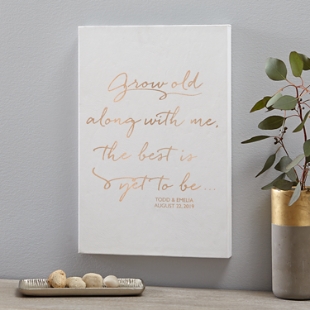 Grow old
along with me,
the best is
yet to be...
TODD & EMILIA